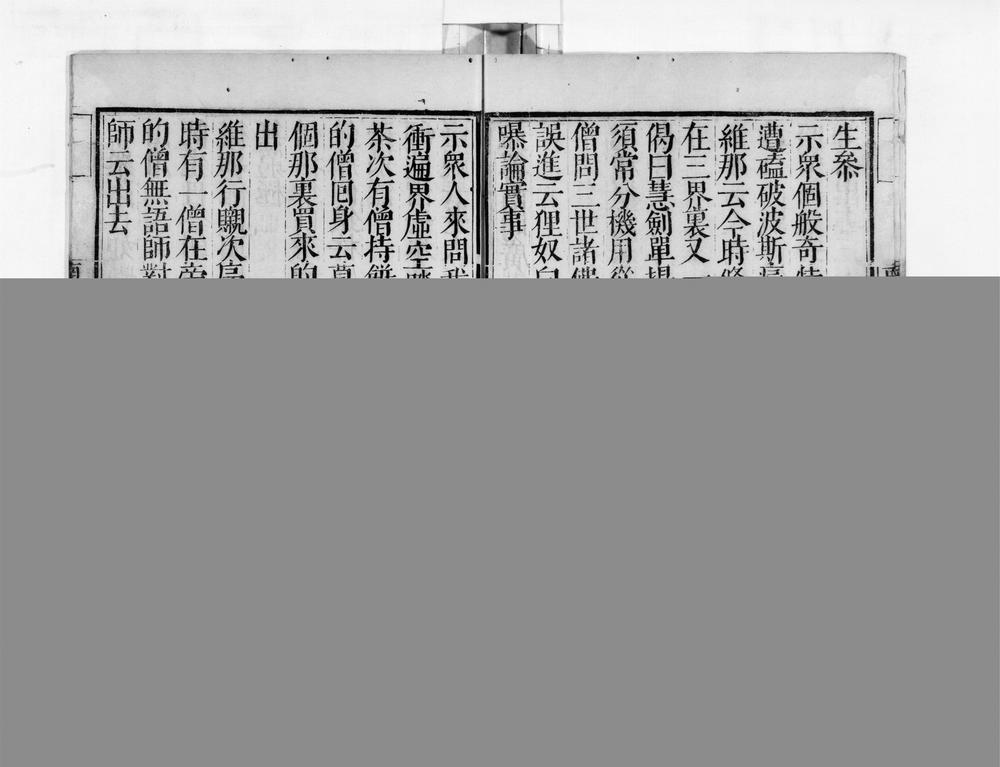 生叅
示衆個般奇
遭磕破波斯
維那云今時
在三界裏又
偈曰慧劍單
須常分機用
僧問三世諸
誤進云狸奴
曝論實事
示衆人來問
衝遍界虛空
茶次有僧持
的僧囘身云
個那裏買來的
出
維那行䞋次
時有一僧在
的僧無語師
師云出去